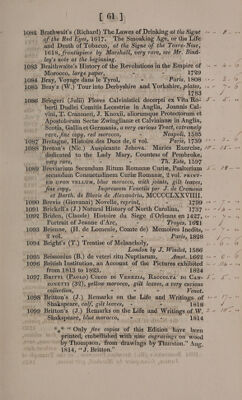 [ 61 ]
1082 Brathwait's (Richard) The Lawes of Drinking at the Signe
of the Red Eyes, 1617. The Smoaking Age, or the Life
and Death of Tobacco, at the Signe of the Teare-Nose,
1618, frontispiece by Marshall, very rare, see Mr. Bindley's
note at the beginning.
1083 Braithwaite's History of the Revolutions in the Empire of
Morocco, large paper, 1729
1084 Bray, Voyage dans le Tyrol, Paris, 1808
1085 Bray's (W.) Tour into Derbyshire and Yorkshire, plates,
1783
1086 Bringeri (Julii) Flores Calvinistici decerpti ex Vita Roberti
Dudlei Comitis Leicestriæ in Anglia, Joannis Calvini,
T. Cranmeri, J. Knoxii, aliorumque Protectorum et
Apostolorum Sectæ Zwinglianæ et Calvinianæ in Anglia,
Scotia, Gallia et Germania, a very curious Tract, extremely
rare, fine copy, red morocco, Neapoli, 1585
1087 Bretagne, Histoire des Ducs de, 6 vol. Paris, 1739
1088 Breton's (Nic.) Auspicante Jehova. Maries Exercise,
dedicated to the Lady Mary, Countess of Pembroke,
very rare. Th. Este, 1597
1089 Breviarium Secundum Ritum Romane Curie, Psalterium
secundum Consuetudinem Curie Romane, 2 vol. PRINTED
UPON VELLUM, blue morocco, with joints, gilt leaves,
fine copy. Impressum Venetiis per J. de Cremona
et Barth. de Blavis de Alexandria, MCCCCLXXVIIII.
1090 Brevio (Giovanni) Novelle, reprint, 1799
1091 Brickell's (J.) Natural History of North Carolina, 1737
1092 Briden, (Claude) Histoire du Siege d'Orleans en 1427,
Portrait of Jeanne d'Arc, Troyes, 1621
1093 Brienne, (H. de Lomenie, Comte de) Memoires Inedits,
2 vol. Paris, 1828
1094 Bright's (T.) Treatise of Melancholy,
London by J. Windet, 1586
1095 Brissonius (B.) de veteri ritu Nuptiarum, Amst. 1662
1096 British Institution, an Account of the Pictures exhibited
from 1813 to 1823, 1824
1097 BRITTI (PAOLO) CIECO DI VENEZIA, RACCOLTA DI CANZONETTI
(32), yellow morocco, gilt leaves, a very curious
collection, Venet.
1098 Britton's (J.) Remarks on the Life and Writings of
Shakspeare, calf, gilt leaves, 1818
1099 Britton's (J.) Remarks on the Life and Writings of W.
Shakspeare, blue morocco, 1814
*⁎* "Only five copies of this Edition have been
printed, embellished with nine engravings on wood
by Thompson, from drawings by Thurston." Aug.
1814, "J. Britton."